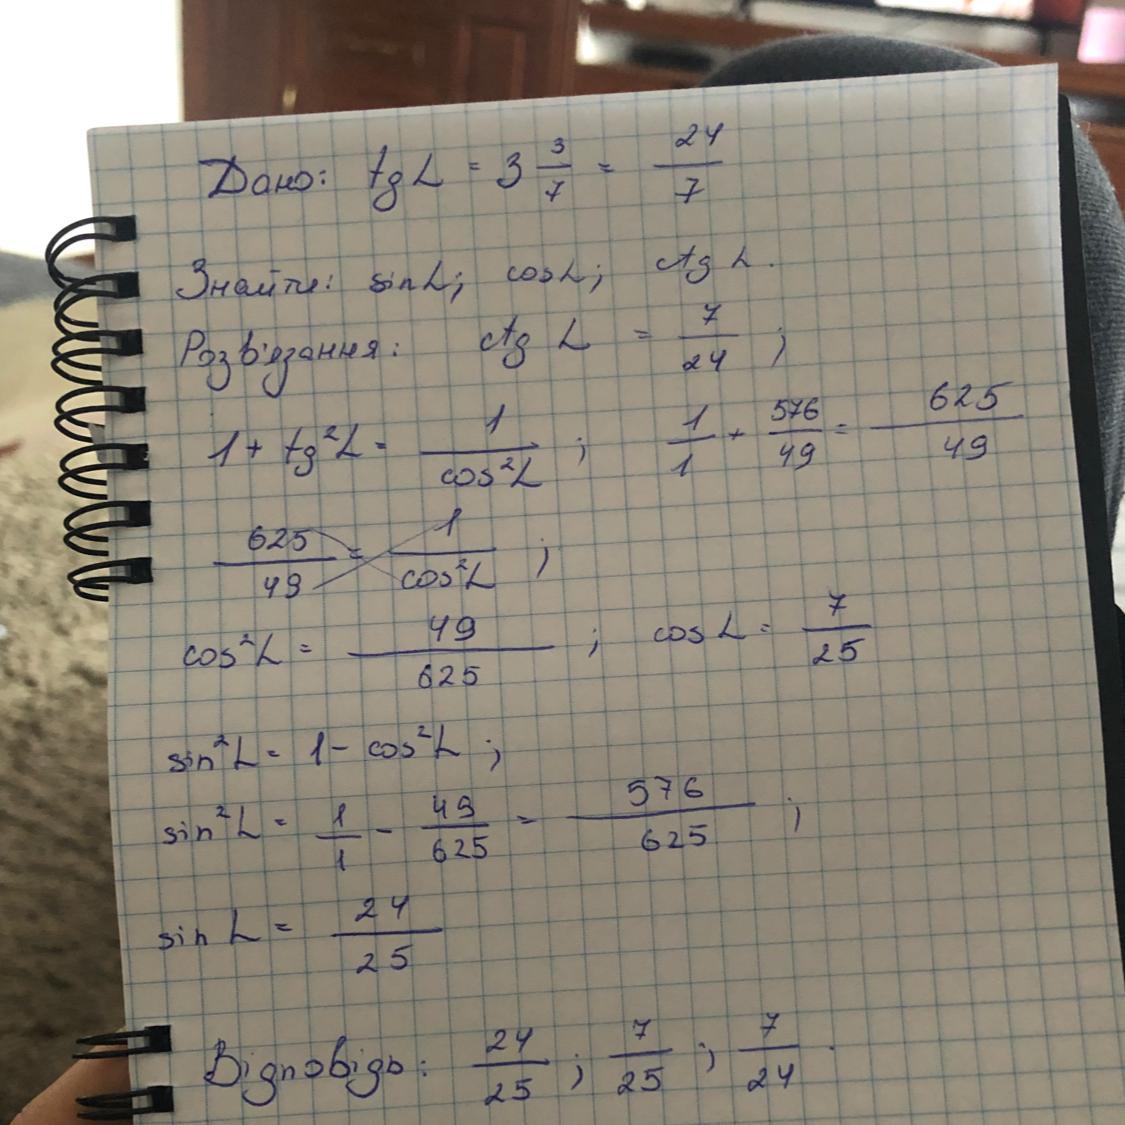 Дано: tg L = 3 3/7 = 24/7
Знайти: sin L; cos L; ctg L.
Розв'язання: ctg L = 7/24 ;
1 + tg²L = 1/cos²L ; 1/1 + 576/49 = 625/49
625/49 = 1/cos²L ;
cos²L = 49/625 ; cos L = 7/25
sin²L = 1 - cos²L ;
sin²L = 1/1 - 49/625 = 576/625 ;
sin L = 24/25
Відповідь: 24/25 ; 7/25 ; 7/24 .